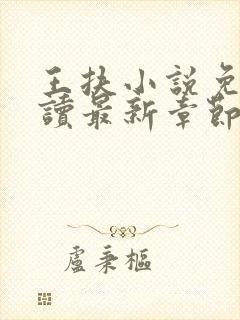 王扶小說免
讀最新章節
盧秉樞